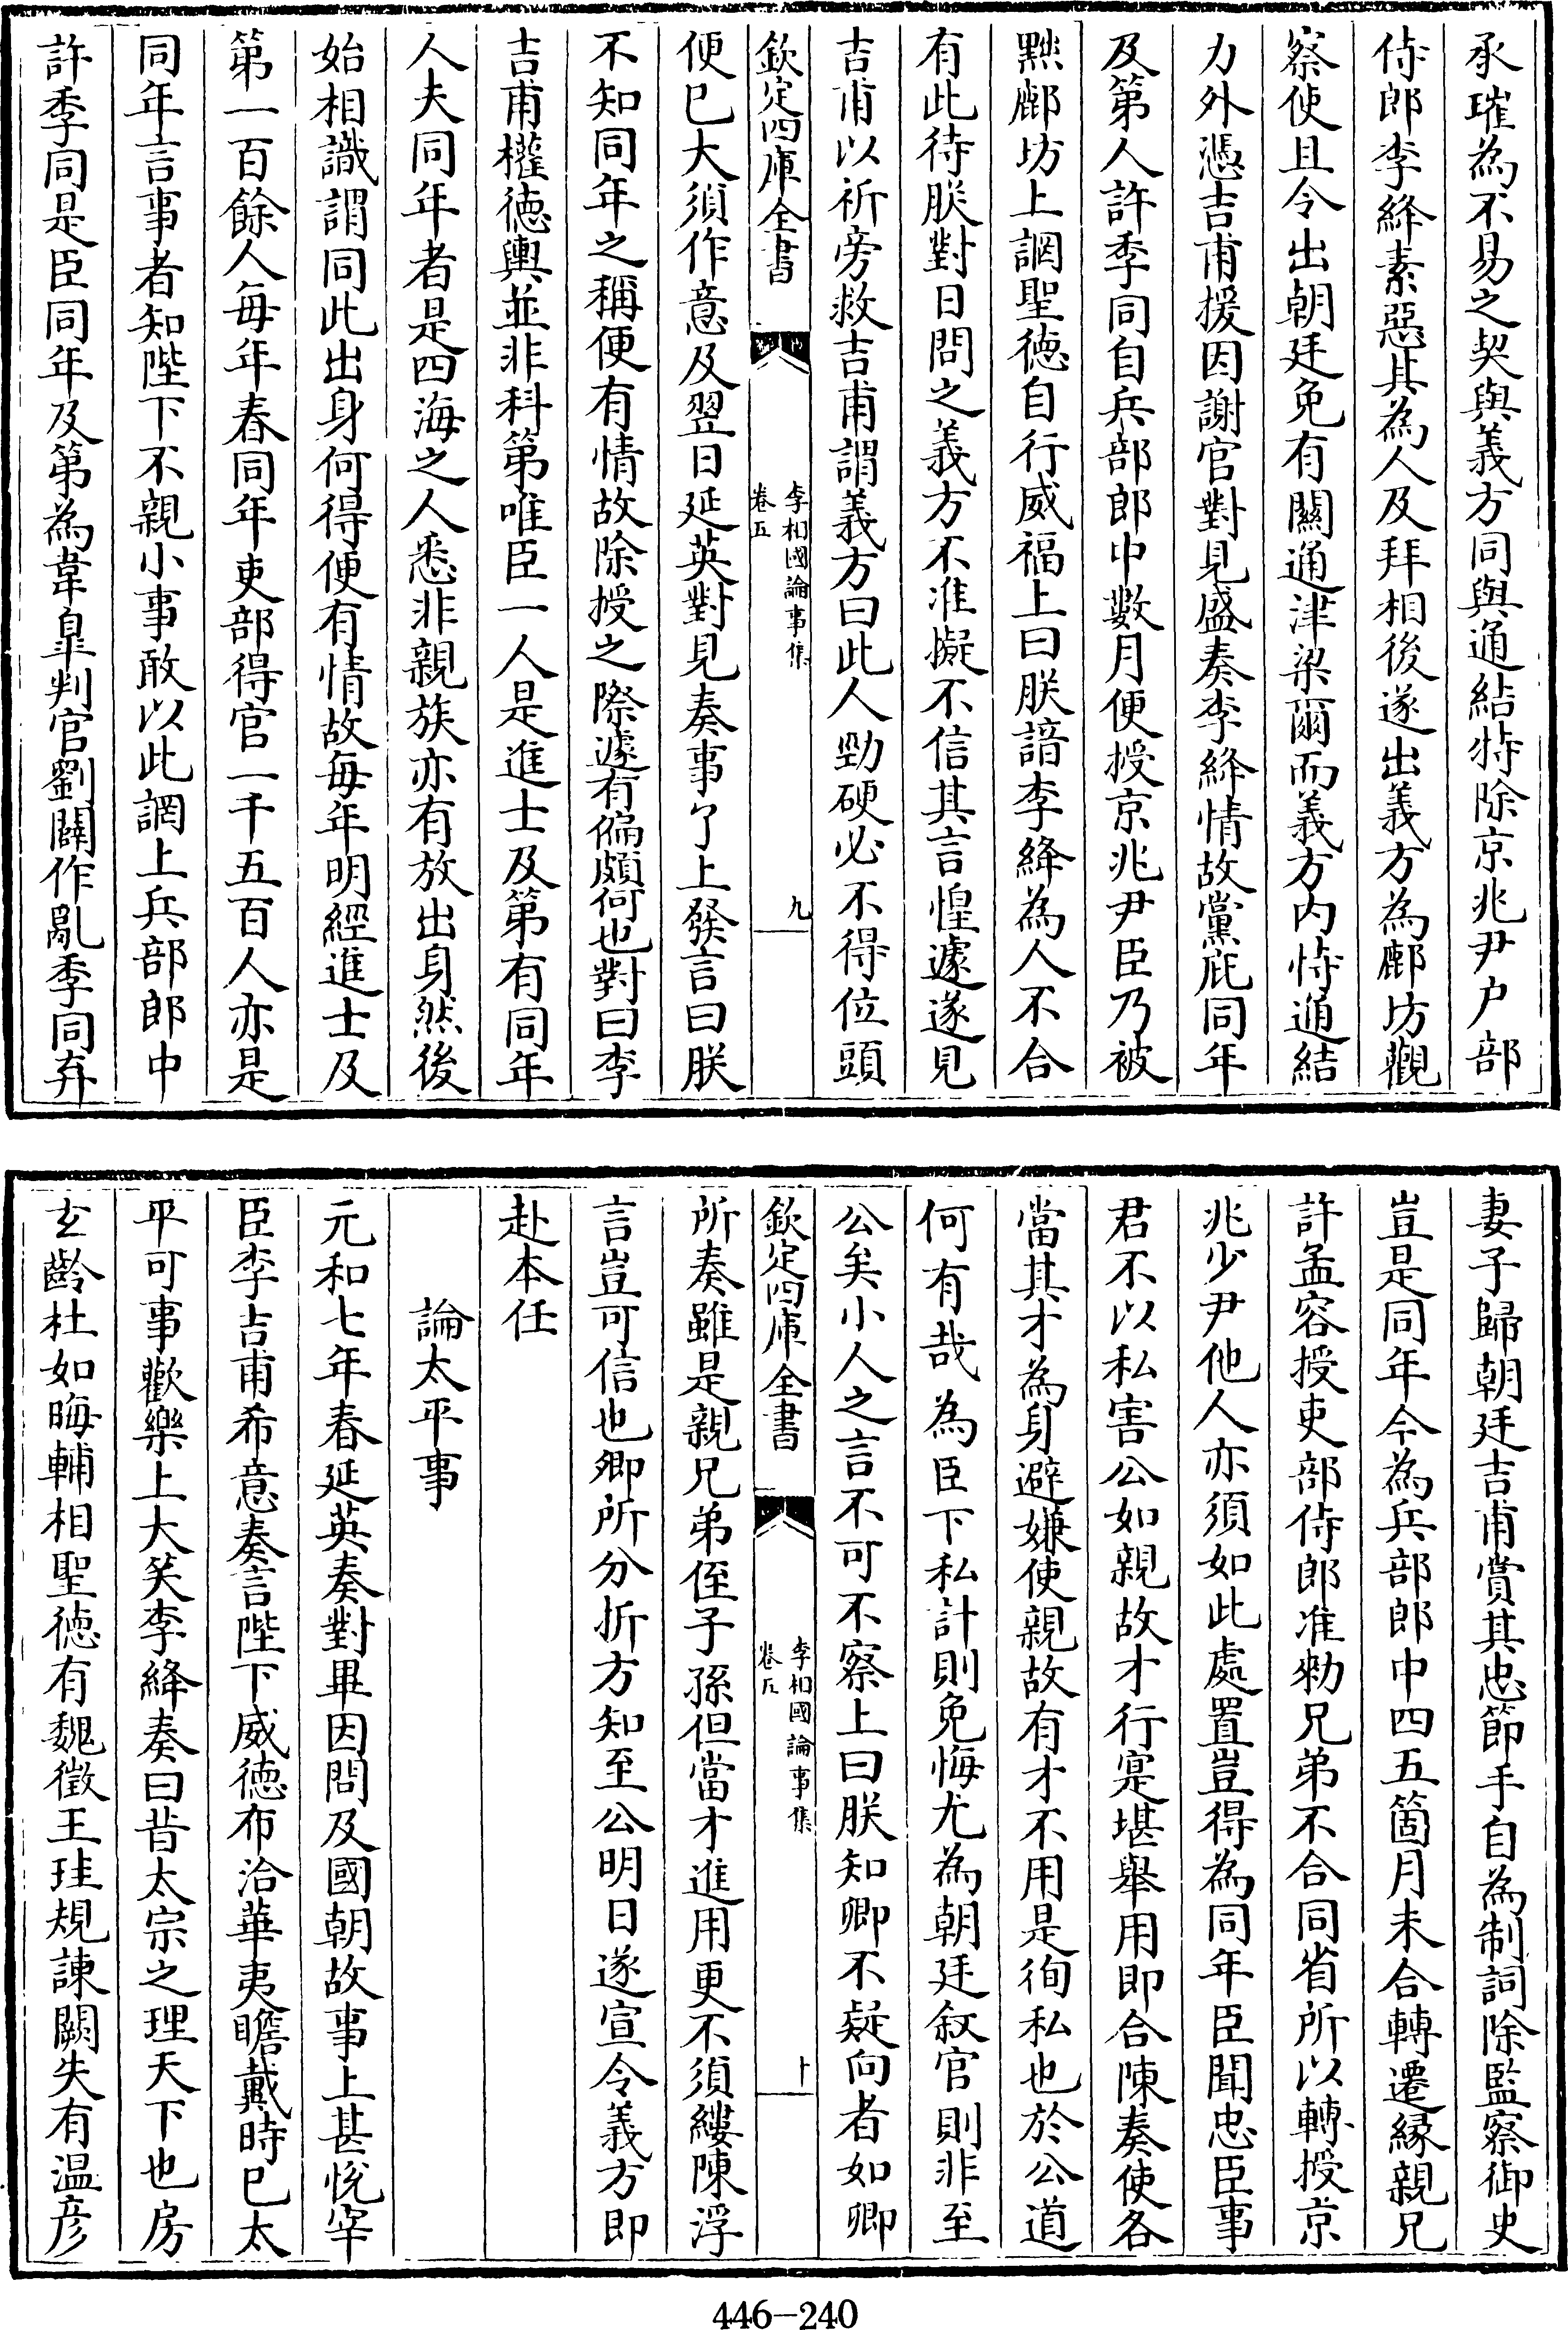 承璀為不易之契與義方同與通結特除京兆尹户部
侍郎李絳素惡其為人及拜相後遂出義方為鄜坊觀
察使且令出朝廷免有關通津梁爾而義方内恃通結
力外憑吉甫援因謝官對見盛奏李絳情故黨庇同年
及第人許季同自兵部郎中數月便授京兆尹臣乃被
黜鄜坊上調聖德自行威福上曰朕諳李絳為人不合
有此待朕對日問之義方不准擬不信其言惶遽遂見
吉甫以祈旁救吉甫謂義方曰此人勁硬必不得位頭
欽定四庫全書
李相國論事集
卷五
九
便已大須作意及翌日延英對見奏事了上發言曰朕
不知同年之稱便有情故除授之際遽有偏頗何也對曰李
吉甫權德輿並非科第唯臣一人是進士及第有同年
人夫同年者是四海之人悉非親族亦有放出身然後
始相識謂同此出身何得便有情故每年明經進士及
第一百餘人每年春同年吏部得官一千五百人亦是
同年言事者知陛下不親小事敢以此罔上兵部郎中
許季同是臣同年及第為韋臯判官劉闢作亂季同弃
妻子歸朝廷吉甫賞其忠節手自為制詞除監察御史
豈是同年今為兵部郎中四五箇月未合轉遷緣親兄
許孟容授吏部侍郎准勅兄弟不合同省所以轉授京
兆少尹他人亦須如此處置豈得為同年臣聞忠臣事
君不以私害公如親故才行寔堪舉用即合陳奏使各
當其才為身避嫌使親故有才不用是徇私也於公道
何有哉為臣下私計則免悔尤為朝廷叙官則非至
公矣小人之言不可不察上曰朕知卿不疑向者如卿
欽定四庫全書
李相國論事集
卷五
十
所奏雖是親兄弟侄子孫但當才進用更不須縷陳浮
言豈可信也卿所分折方知至公明日遂宣令義方即
赴本任
論太平事
元和七年春延英奏對畢因問及國朝故事上甚悅宰
臣李吉甫希意奏言陛下威德布洽華夷瞻戴時已太
平可事歡樂上大笑李絳奏曰昔太宗之理天下也房
玄齡杜如晦輔相聖德有魏徵王珪規諫闕失有温彦
446-240